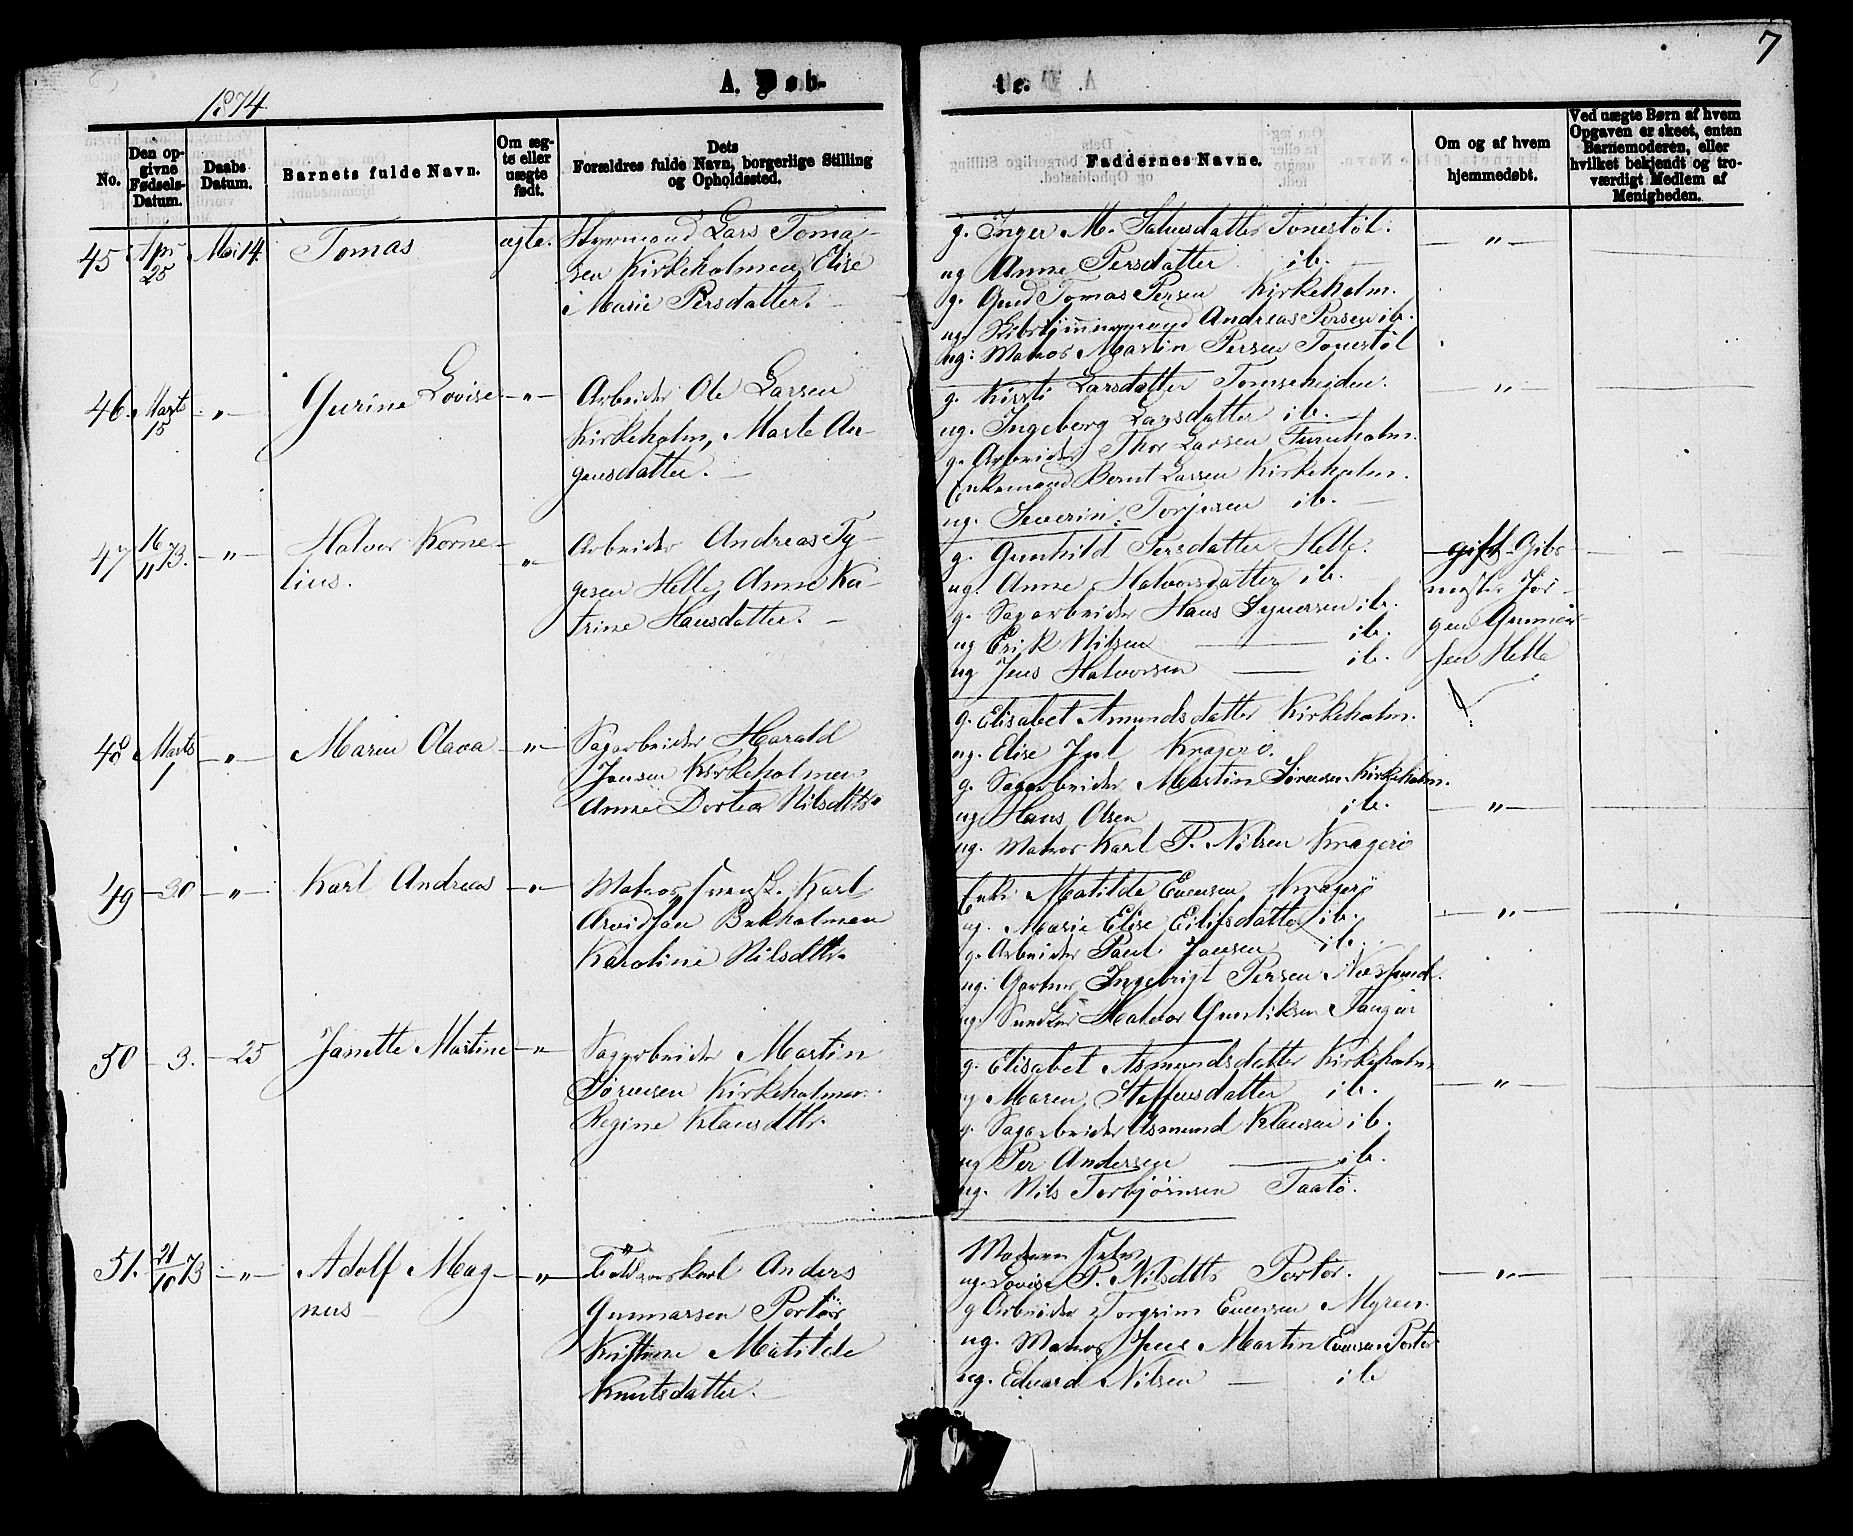 7
A. Døb-
te.
1874
No.
Den op-
givne
Fødsels-
Datum.
Daabs-
Datum.
Barnets fulde Navn.
Om æg-
te eller
uægte
født.
Dets
Forældres fulde Navn, borgerlige Stilling
og Opholdssted.
Faddernes Navne.
Om og af hvem
hjemmedøbt.
Ved uægte Børn af hvem
Opgaven er skeet, enten
Barnemoderen, eller
hvilket bekjendt og tro-
værdigt Medlem af
Menigheden.
45 Apr 25 Mai 14. Tomas ægte.
Styrmand Lars Toma-
sen Kirkeholmen, Elise
Marie Persdatter.
g. Inger M. Salvesdatter Tonestøl.
ug Anne Persdatter ib.
g. Tomas Persen Kirkeholm.
ug Andreas Persen ib.
ug. Matros Martin Persen Tonestøl
— " —
46. Marts 15 — " — Gurine Lovise — " —
Arbeider Ole Larsen
Kirkeholm, Marte An-
gensdatter.
g. Kirsti Larsdatter
ug. Ingeborg Larsdatter ib.
g. Arbeider Thor Larsen Furuholm.
Enkemand Bernt Larsen Kirkeholm.
ug. Severin Torjesen ib.
— " —
47 16/11 73. — " — Halvor Korne-
lius. — " —
Arbeider Andreas Ty-
gesen Helle, Anne Ka-
trine Hansdatter.
g. Gunhild Persdatter Helle.
ug. Anne Halvorsdatter ib.
g. Sagarbeider Hans Syversen ib.
ug Erik Nilsen — ib.
ug Jens Halvorsen — ib.
gift Gibs
mester Jør-
gen Gunnar-
sen Helle
48 Marts 1 — " — Maren Olava — " —
Sagarbeider Harald
Jansen Kirkeholmen,
Anne Dortea Nilsdtr.
g. Elisabet Amundsdatter Kirkeholm.
ug. Elise Juel Kragerø.
g. Sagarbeider Martin Sørensen Kirkeholm.
ug Hans Olsen ib.
ug. Matros Karl P. Nilsen Kragerø
— " —
49 — 30 — " — Karl Andreas — " —
Matros svensk. Karl
Arvidsen Bukholmen
Karoline Nilsdttr.
Enke Matilde Evensen Kragerø
ug. Marie Elise Eilifsdatter ib.
g. Arbeider Paul Jansen ib.
ug. Gartner Ingebrigt Persen Næssund.
ug. Snedker Halvor Gundiksen Tangen
— " —
50 — 3. — 25 Janette Martine — " —
Sagarbeider Martin
Sørensen Kirkeholmen.
Regine Klausdttr.
g. Elisabet Asmundsdatter Kirkeholm
ug Maren Steffensdatter ib.
g. Sagarbeider Asmund Klausen ib.
ug Per Andersen — ib.
ug. Nils Torbjørnsen Taatø.
— " —
51. 21/10 73 — " — Adolf Mag-
nus — " —
Anders
Gunnarsen Portør
Kristine Matilde
Knutsdatter.
Moderen selv
ug. Lovise P. Nilsdttr Portør.
g Arbeider Torgrim Evensen Myren.
ug. Matros Jens Martin Evensen Portør
ug. Edvard Nilsen — ib
— " —